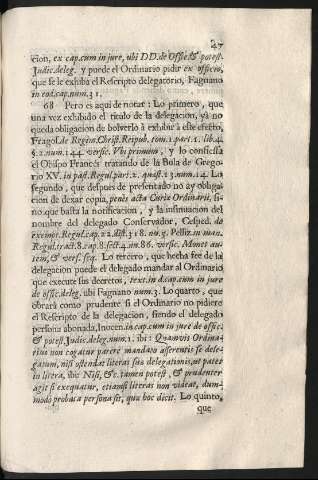 27
cion, ex cap.cum in jure, ubi DD.de Offic.& potest.
Judic.deleg. y puede el Ordinario pidir ex officio,
que se le exhiba el Rescripto delegatorio, Fagnano
in eod.cap.num.31.
68 Pero es aqui de notar: Lo primero, que
una vez exhibido el titulo de la delegacion, yà no
queda obligacion de bolverlo à exhibir à este efecto,
Frago. de Regim.Christ.Reipub. tom.2.part.1. lib.4.
§.2.num.144. versic. Ubi primùm, y lo confiessa
el Obispo Francés tratando de la Bula de Grego-
rio XV. in past.Regul.part.2. quæst.23.num.14. Lo
segundo, que despues de presentado no ay obliga-
cion de dexar copia, penès acta Curiæ Ordinarii, si-
no que basta la notificacion, y la insinuacion del
nombre del delegado Conservador, Cesped. de
exempt.Regul.cap.22. Pelliz.in man.
Regul.tract.8.cap.8.sect.4.nn.86. versic. Monet au-
tem, & vers. seq. Lo tercero, que hecha fee de la
delegacion puede el delegado mandar al Ordinario
que execute sus decretos, text.in d.cap.cum in jure
de offic.deleg. ubi Fagnano num.3. Lo quarto, que
obrarà como prudente si el Ordinario no pidiere
el Rescripto de la delegacion, siendo el delegado
persona abonada, Inocen.in cap.cum in jure de offic.
& potest. Judic.deleg.num.1. ibi: Quamvis Ordina-
rius non cogatur parere mandato asserentis se dele-
gatum, nisi ostendat literas suæ delegationis, ut patet
in litera, ibi: Nisi, &c. tamen potest, & prudenter
agit si exequatur, etiamsi literas non videat, dum-
modo probata persona sit, quæ hoc dicit. Lo quinto,
que